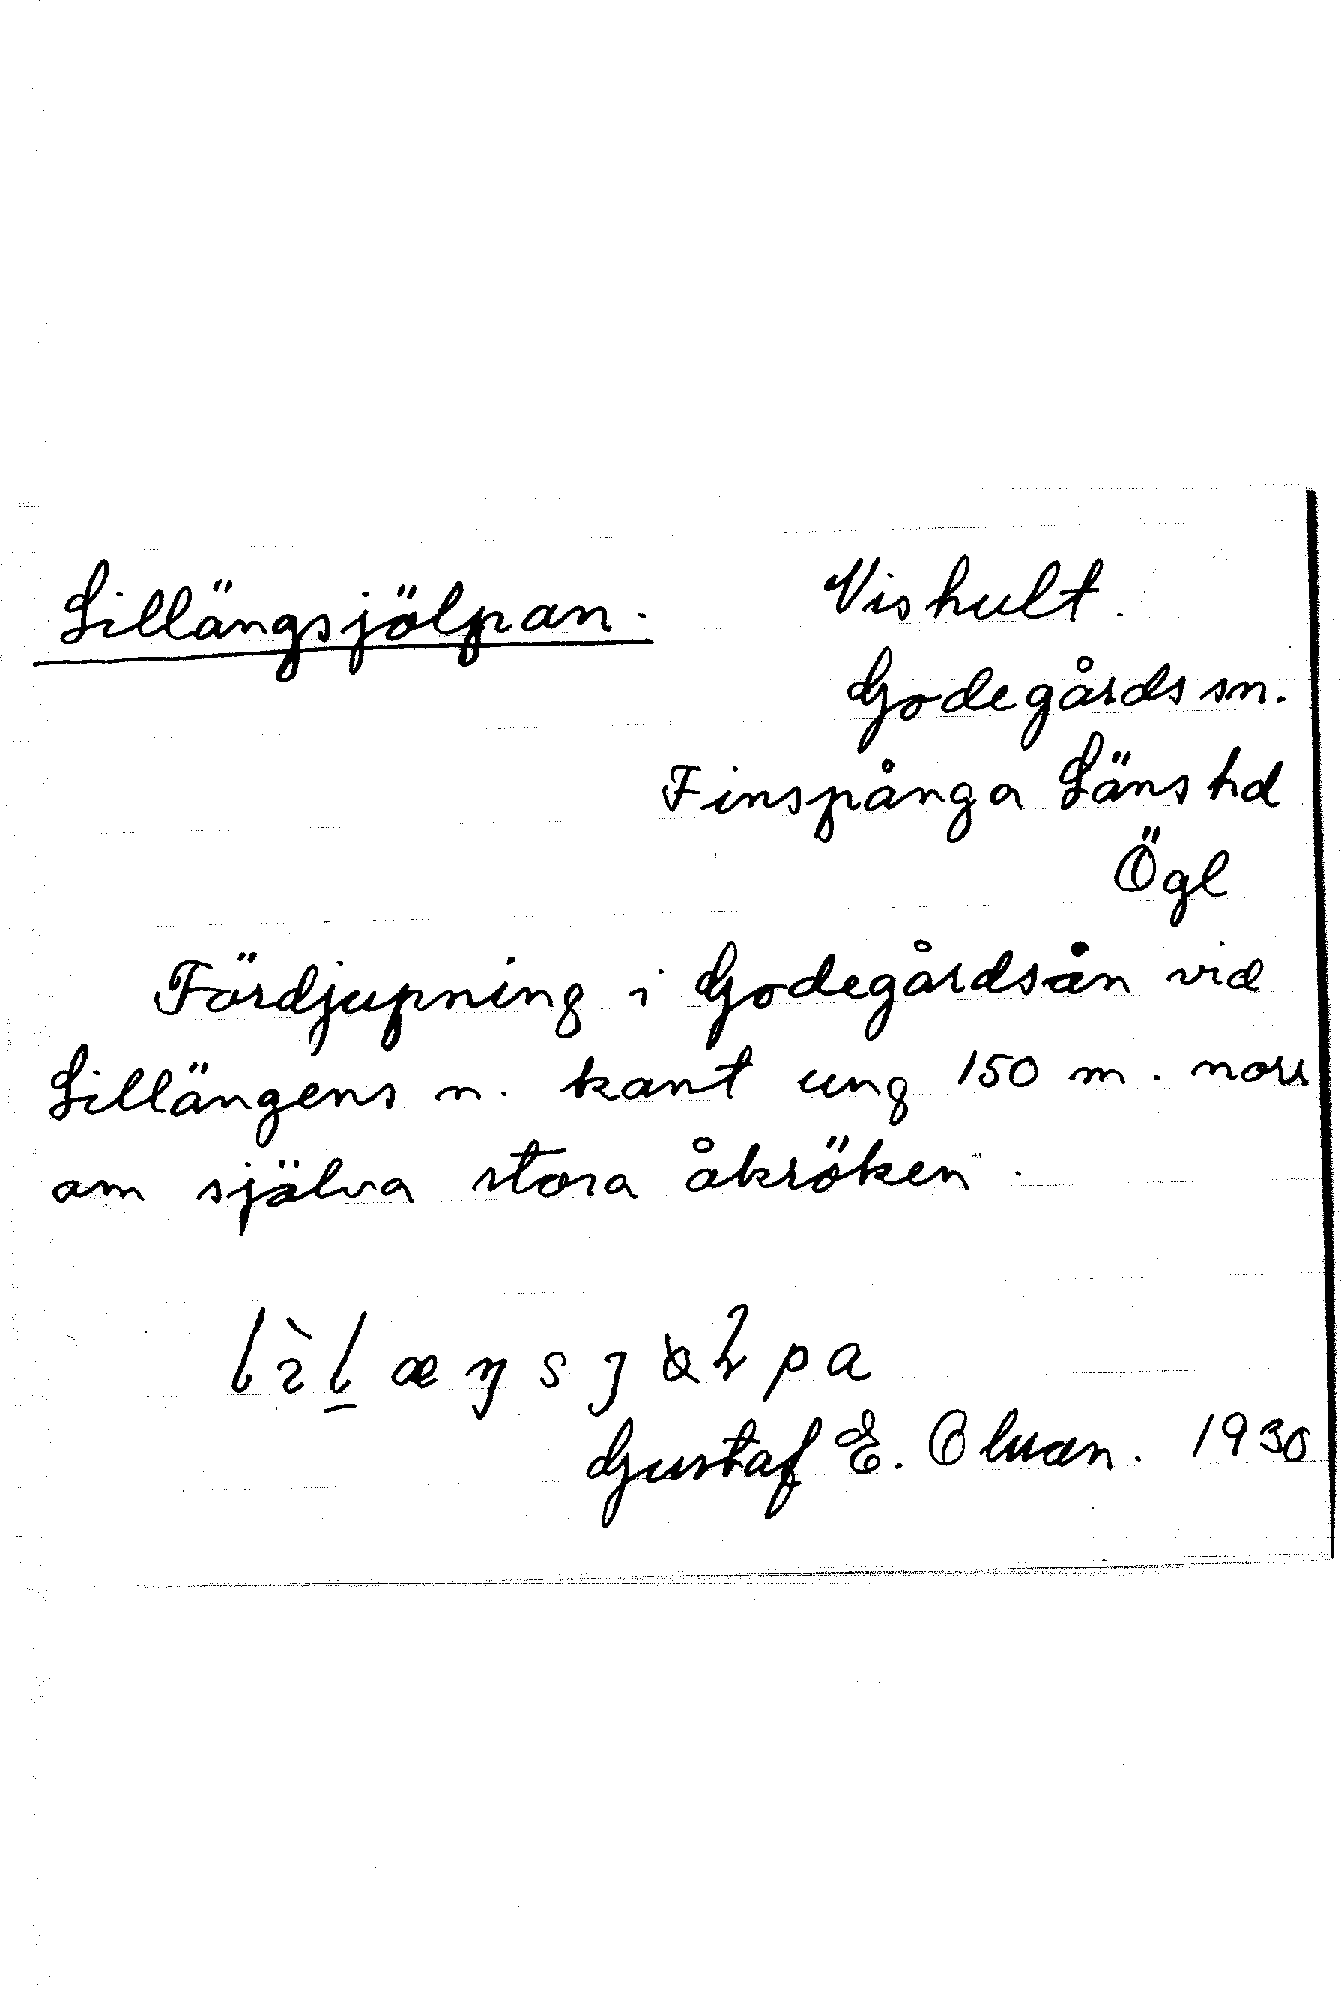 Lillängsjölpan.
Vishult.
Godegårds sn.
Finspånga Läns hd
Ögl
Fördjupning i Godegårdsån vid
Lillängens n. kant ung 150 m. norr
om själva stora åkröken.
Gustaf E. Olsson. 1930